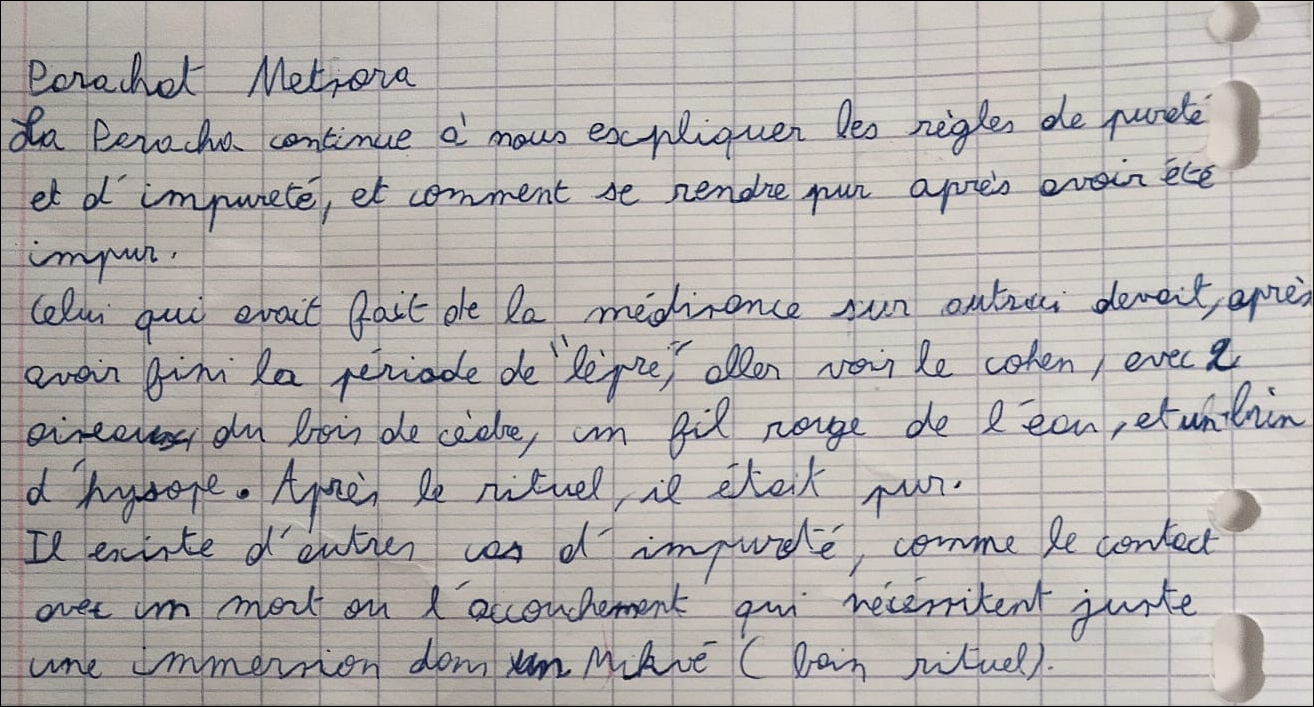 Parachat Metsora
La Paracha continue à nous expliquer les règles de pureté
et d'impureté, et comment se rendre pur après avoir été
impur.
Celui qui avait fait de la médisance sur autrui devait, après
avoir fini la période de "lèpre", aller voir le cohen, avec 2
oiseaux, du bois de cèdre, un fil rouge de l'eau, et un brin
d'hysope. Après le rituel, il était pur.
Il existe d'autres cas d'impureté, comme le contact
avec un mort ou l'accouchement qui nécéssitent juste
une immersion dans un Mikvé (bain rituel).